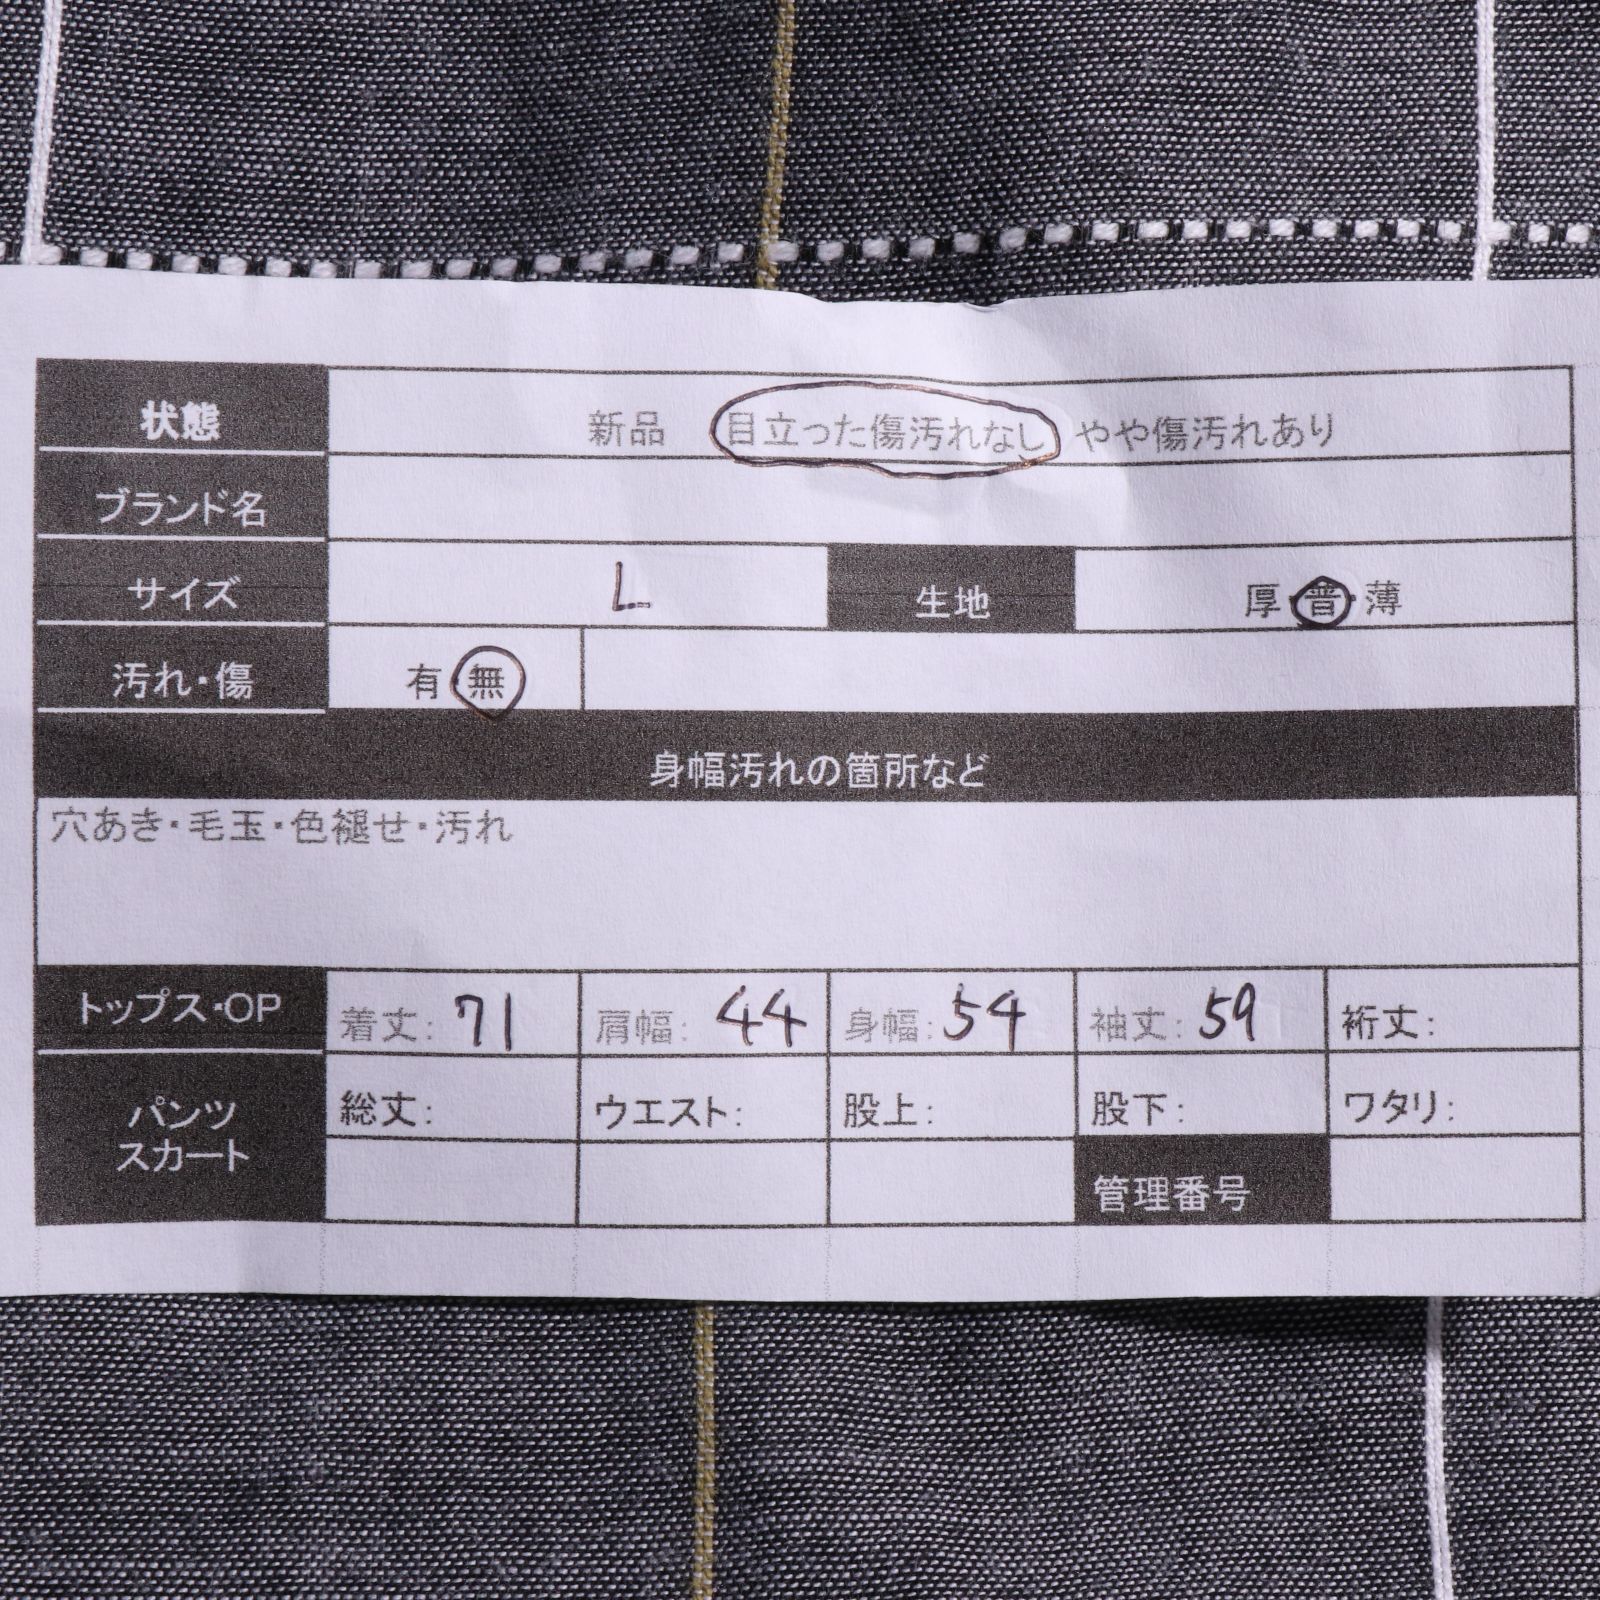 状態 新品 目立った傷汚れなし やや傷汚れあり
ブランド名
サイズ L 生地 厚・普・薄
汚れ・傷 有・無
身幅汚れの箇所など
穴あき・毛玉・色褪せ・汚れ
トップス・OP 着丈: 71 肩幅: 44 身幅: 54 袖丈: 59 裄丈:
パンツ スカート 総丈: ウエスト: 股上: 股下: ワタリ:
管理番号